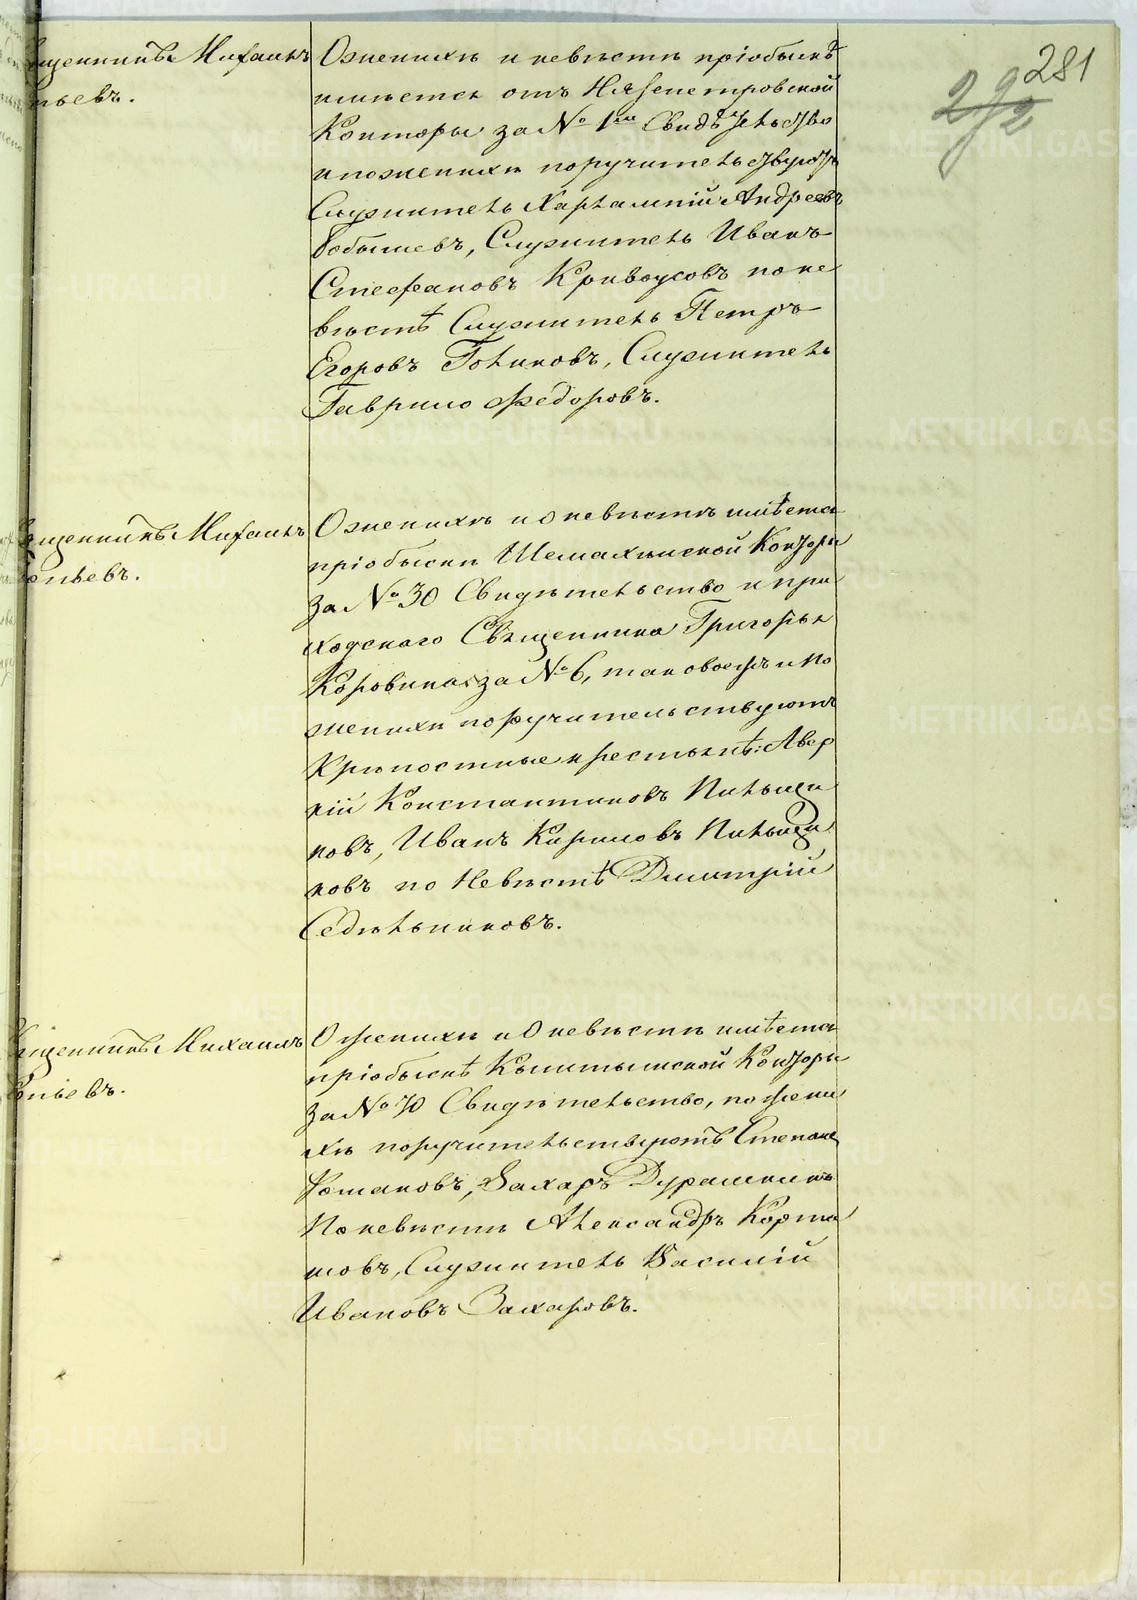 281
292
щенникъ Михаилъ
тьевъ.
О женихѣ и невѣстѣ при обыскѣ
имѣется отъ Нязепетровской
Конторы за № 1м Свидѣтельство
и по женихѣ поручительствуютъ
Служитель Харлампій Андреевъ
Бобышевъ, Служитель Иванъ
Стефановъ Кривоусовъ по не
вѣстѣ Служитель Петръ
Егоровъ Голиковъ, Служитель
Гаврило Федоровъ.
щенникъ Михаилъ
тьевъ.
О женихѣ и о невѣстѣ имѣется
при обыскѣ Шемахинской Конторы
за № 30 Свидѣтельство и при
ходскаго Священника Григорья
Коровина за № 6, таковое жъ и по
женихѣ поручительствуютъ
Крѣпостные крестьянѣ: Авер
кій Константиновъ Пильщи
ковъ, Иванъ Кириловъ Пильщи
ковъ по Невѣстѣ Димитрій
Сѣдѣльниковъ.
щенникъ Михаилъ
тьевъ.
О женихѣ и О невѣстѣ имѣется
при обыскѣ Кыштымской Конторы
за № 70 Свидѣтельство, по жени
хѣ поручительствуютъ Степанъ
Романовъ, Захаръ Дурашкинъ
По невѣстѣ Александръ
Служитель Василій
Ивановъ Захаровъ.
METRIKI.GASO-URAL.RU